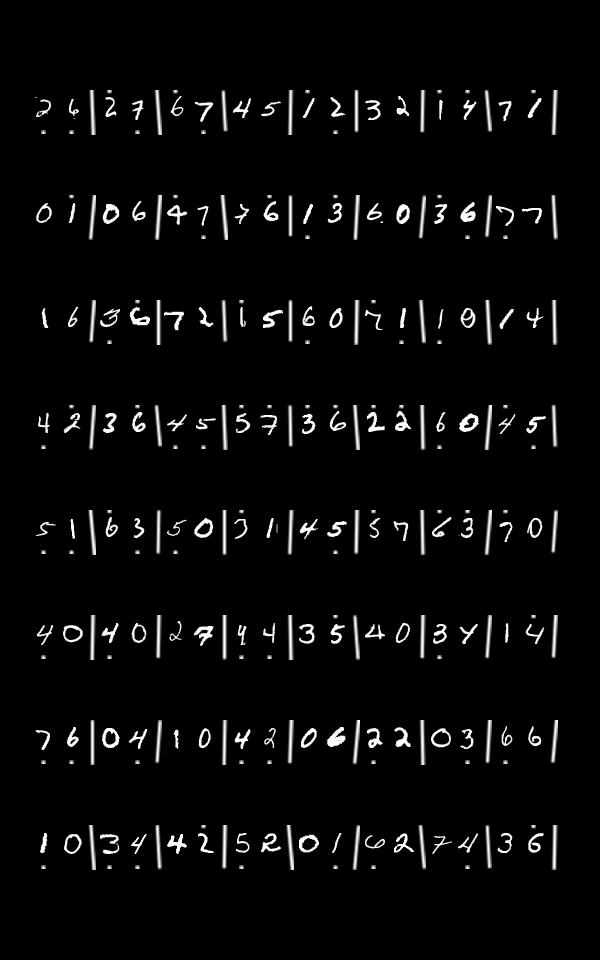 2 6 | 2 7 | 6 7 | 4 5 | 1 2 | 3 2 | 1 4 | 7 1 |
0 1 | 0 6 | 4 7 | 7 6 | 1 3 | 6 0 | 3 6 | 7 7 |
1 6 | 3 6 | 7 2 | 1 5 | 6 0 | 7 1 | 1 0 | 1 4 |
4 2 | 3 6 | 4 5 | 5 7 | 3 6 | 2 2 | 6 0 | 4 5 |
5 1 | 6 3 | 5 0 | 3 1 | 4 5 | 5 7 | 6 3 | 7 0 |
4 0 | 4 0 | 2 7 | 4 4 | 3 5 | 4 0 | 3 4 | 1 4 |
7 6 | 0 4 | 1 0 | 4 2 | 0 6 | 2 2 | 0 3 | 6 6 |
1 0 | 3 4 | 4 2 | 5 2 | 0 1 | 6 2 | 7 4 | 3 6 |